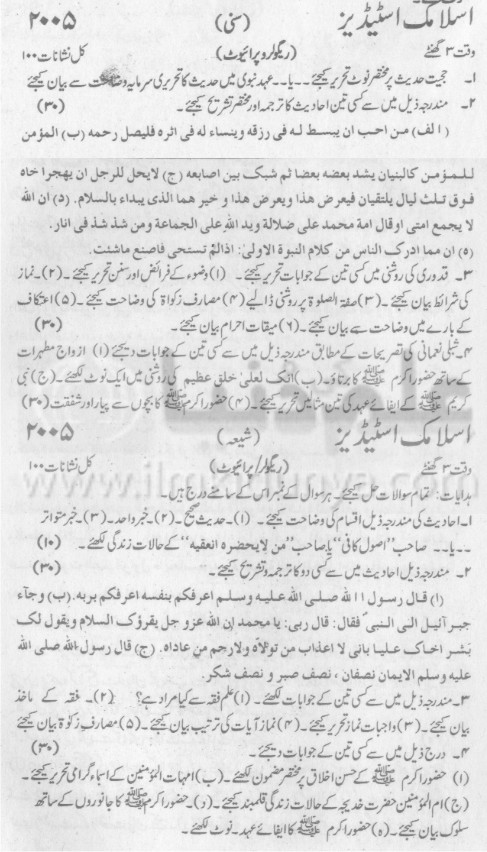 اسلامک اسٹیڈیز (سنی) ۲۰۰۵
وقت ۳ گھنٹے (ریگولر و پرائیوٹ) کل نشانات ۱۰۰
۱۔ حجیت حدیث پر مختصر نوٹ تحریر کیجئے۔۔یا۔۔ عہد نبوی میں حدیث کا تحریری سرمایہ وضاحت سے بیان کیجئے
۲۔ مندرجہ ذیل میں سے کسی تین احادیث کا ترجمہ اور مختصر تشریح کیجئے۔ (۳۰)
(الف) من احب ان یبسط لہ فی رزقہ وینساء لہ فی اثرہ فلیصل رحمہ (ب) المؤمن
للمؤمن کالبنیان یشد بعضہ بعضا ثم شبک بین اصابعہ (ج) لایحل للرجل ان یھجرا خاہ
فوق ثلث لیال یلتقیان فیعرض ھذا ویعرض ھذا و خیر ھما الذی یبداء بالسلام۔ (د) ان اللہ
لا یجمع امتی اوقال امة محمد علی ضلالة وید اللہ علی الجماعة ومن شذ شذ فی انار۔
(ہ) ان مما ادرک الناس من کلام النبوة الاولیٰ: اذالم تستحی فاصنع ماشئت۔
۳۔ قدوری کی روشنی میں کسی تین کے جوابات تحریر کیجئے۔ (۱) وضوء کے فرائض اور سنن تحریر کیجئے۔ (۲)۔ نماز
کی شرائط بیان کیجئے۔ (۳) صفة الصلوة پر روشنی ڈالیے (۴) مصارف زکوة کی وضاحت کیجئے۔ (۵) اعتکاف
کے بارے میں وضاحت سے بیان کیجئے۔ (۶) میقات احرام بیان کیجئے۔ (۳۰)
۴۔ شبلی نعمانی کی تصریحات کے مطابق مندرجہ ذیل میں سے کسی تین کے جوابات دیجئے (۱) ازواج مطہرات
کے ساتھ حضور اکرم ﷺ کا برتاؤ۔ (ب) انک لعلیٰ خلق عظیم کی روشنی میں ایک نوٹ لکھئے۔ (ج) نبی
کریم ﷺ کے ایفائے عہد کی تین مثالیں تحریر کیجئے۔ (۴) حضور اکرم ﷺ کا بچوں سے پیار اور شفقت (۳۰)
اسلامک اسٹیڈیز (شیعہ) ۲۰۰۵
وقت ۳ گھنٹے (ریگولر/پرائیوٹ) کل نشانات ۱۰۰
ہدایات: تمام سوالات حل کیجئے۔ ہر سوال کے نمبر اس کے سامنے درج ہیں۔
۱۔ احادیث کی مندرجہ ذیل اقسام کی وضاحت کیجئے۔ (۱)۔ حدیث صحیح۔ (۲)۔ خبر واحد۔ (۳)۔ خبر متواتر
۔۔یا۔۔ صاحب "اصول کافی" یا صاحب "من لا یحضرہ انعقیہ" کے حالات زندگی لکھئے۔ (۱۰)
۲۔ مندرجہ ذیل احادیث میں سے کسی دو کا ترجمہ و تشریح کیجئے۔ (۳۰)
(ا) قال رسول اللہ صلی اللہ علیہ وسلم اعرفکم بنفسہ اعرفکم بربہ۔ (ب) وجآء
جبرآئیل الی النبی فقال: قال ربی: یا محمد إن اللہ عزو جل یقرؤک السلام ویقول لک
بشر اخاک علیا بانی لا اعذاب من تولاہ ولارحم من عاداہ۔ (ج) قال رسول اللہ صلی اللہ
علیہ وسلم الایمان نصفان، نصف صبر و نصف شکر۔
۳۔ مندرجہ ذیل میں سے کسی تین کے جوابات لکھئے۔ (۱) علم فقہ سے کیا مراد ہے؟ (۲)۔ فقہ کے ماخذ
بیان کیجئے۔ (۳) واجبات نماز تحریر کیجئے۔ (۴) نماز آیات کی ترتیب بیان کیجئے۔ (۵) مصارف زکوة بیان کیجئے
۴۔ درج ذیل میں سے کسی تین کے جوابات دیجئے۔ (۳۰)
(ا) حضور اکرم ﷺ کے حسن اخلاق پر مختصر مضمون لکھئے۔ (ب) امہات المؤمنین کے اسمائے گرامی تحریر کیجئے۔
(ج) ام المؤمنین حضرت خدیجہ کے حالات زندگی قلمبند کیجئے۔ (د)۔ حضور اکرم ﷺ کا جانوروں کے ساتھ
سلوک بیان کیجئے۔ (ہ) حضور اکرم ﷺ کا ایفائے عہد۔ نوٹ لکھئے۔
www.ilmkidunya.com